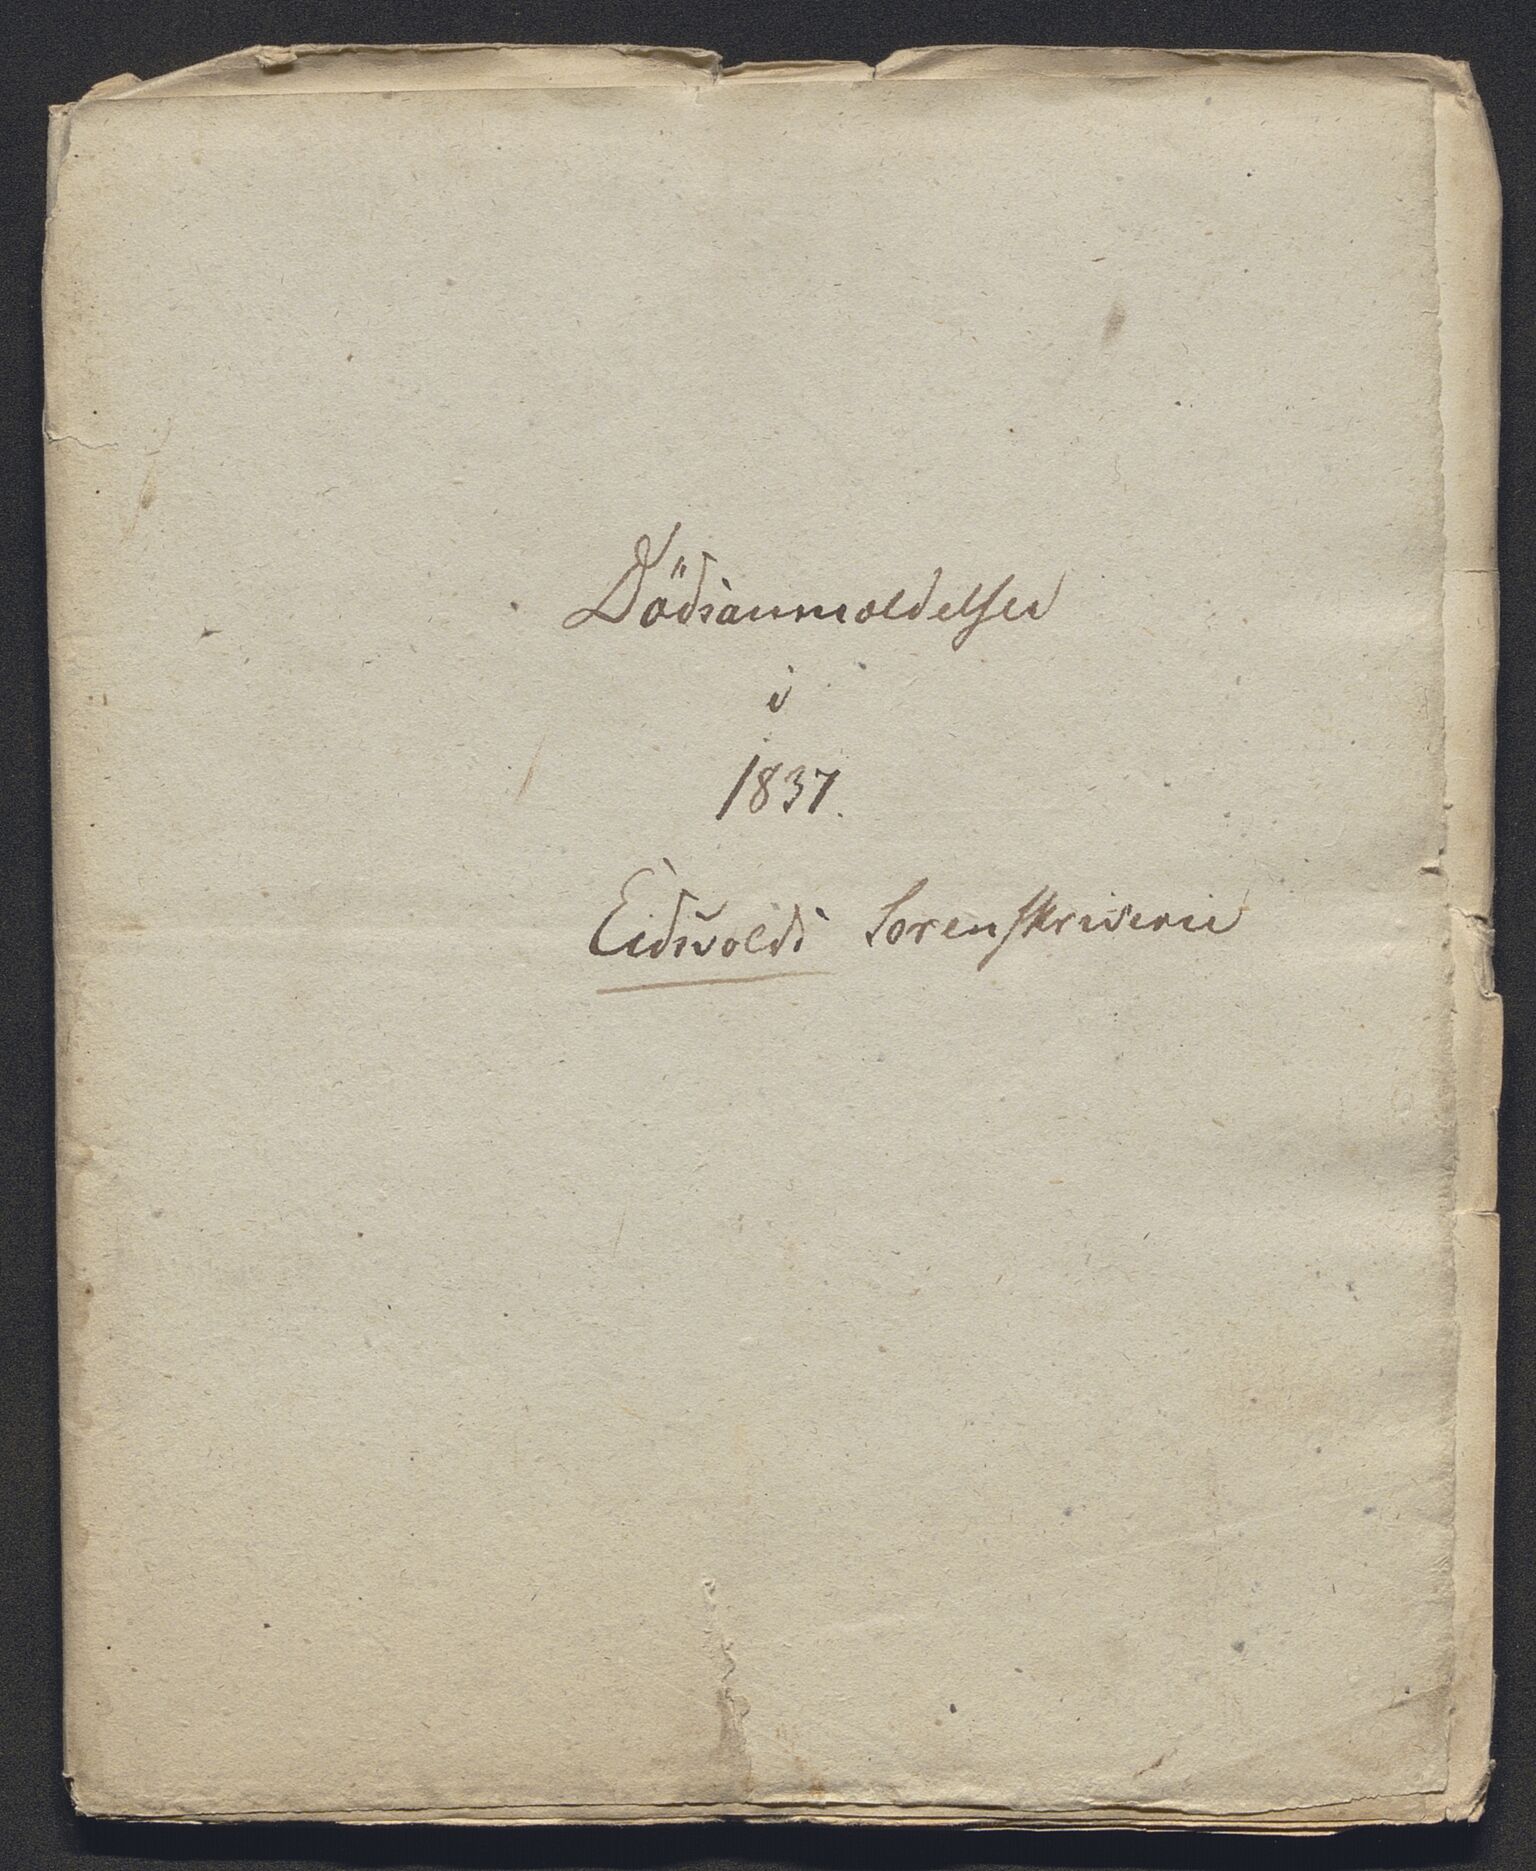 Dödsanmeldelser
i
1837.
Eidsvolds Sorenskriverie